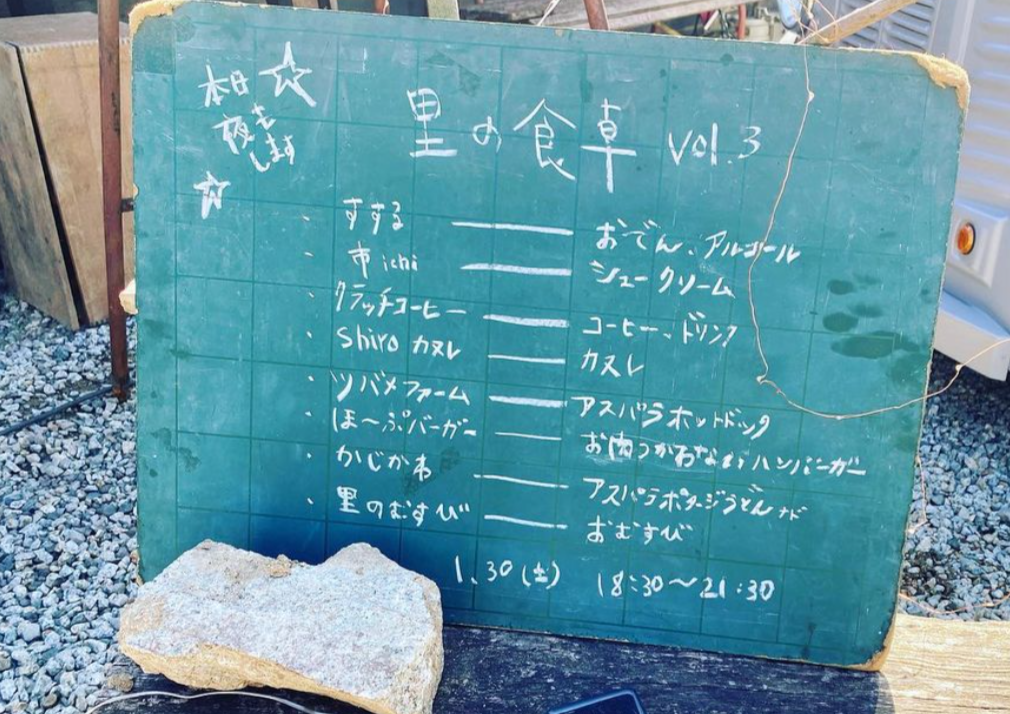 本日
夜も
します
里の食卓 vol.3
・すする ― おでん、アルコール
・市ichi ― シュークリーム
・クラッチコーヒー ― コーヒー、ドリンク
・shiro カヌレ ― カヌレ
・ツバメファーム ― アスパラホットドック
・ほ〜ぷバーガー ― お肉つかわないハンバーガー
・かじか ― アスパラポタージうどんナド
・里のむすび ― おむすび
1.30(土) 18:30〜21:30